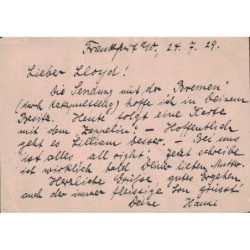 Frankfurt a/O, 24. 7. 29.
Lieber Lloyd!
Die Sendung mit der "Bremen"
(durch Katapultflug) hoffe ich in Deinem
Besitz. Heute folgt eine Karte
mit dem Zeppelin! – Hoffentlich
geht es Lilliam besser. – Bei uns
ist alles all right. Jetzt schreibe
ich wirklich bald Deiner lieben Mutter.
Herzliche Grüsse, gutes Ergehen
auch der immer fleissige Son grüsst.
Deine Hansi